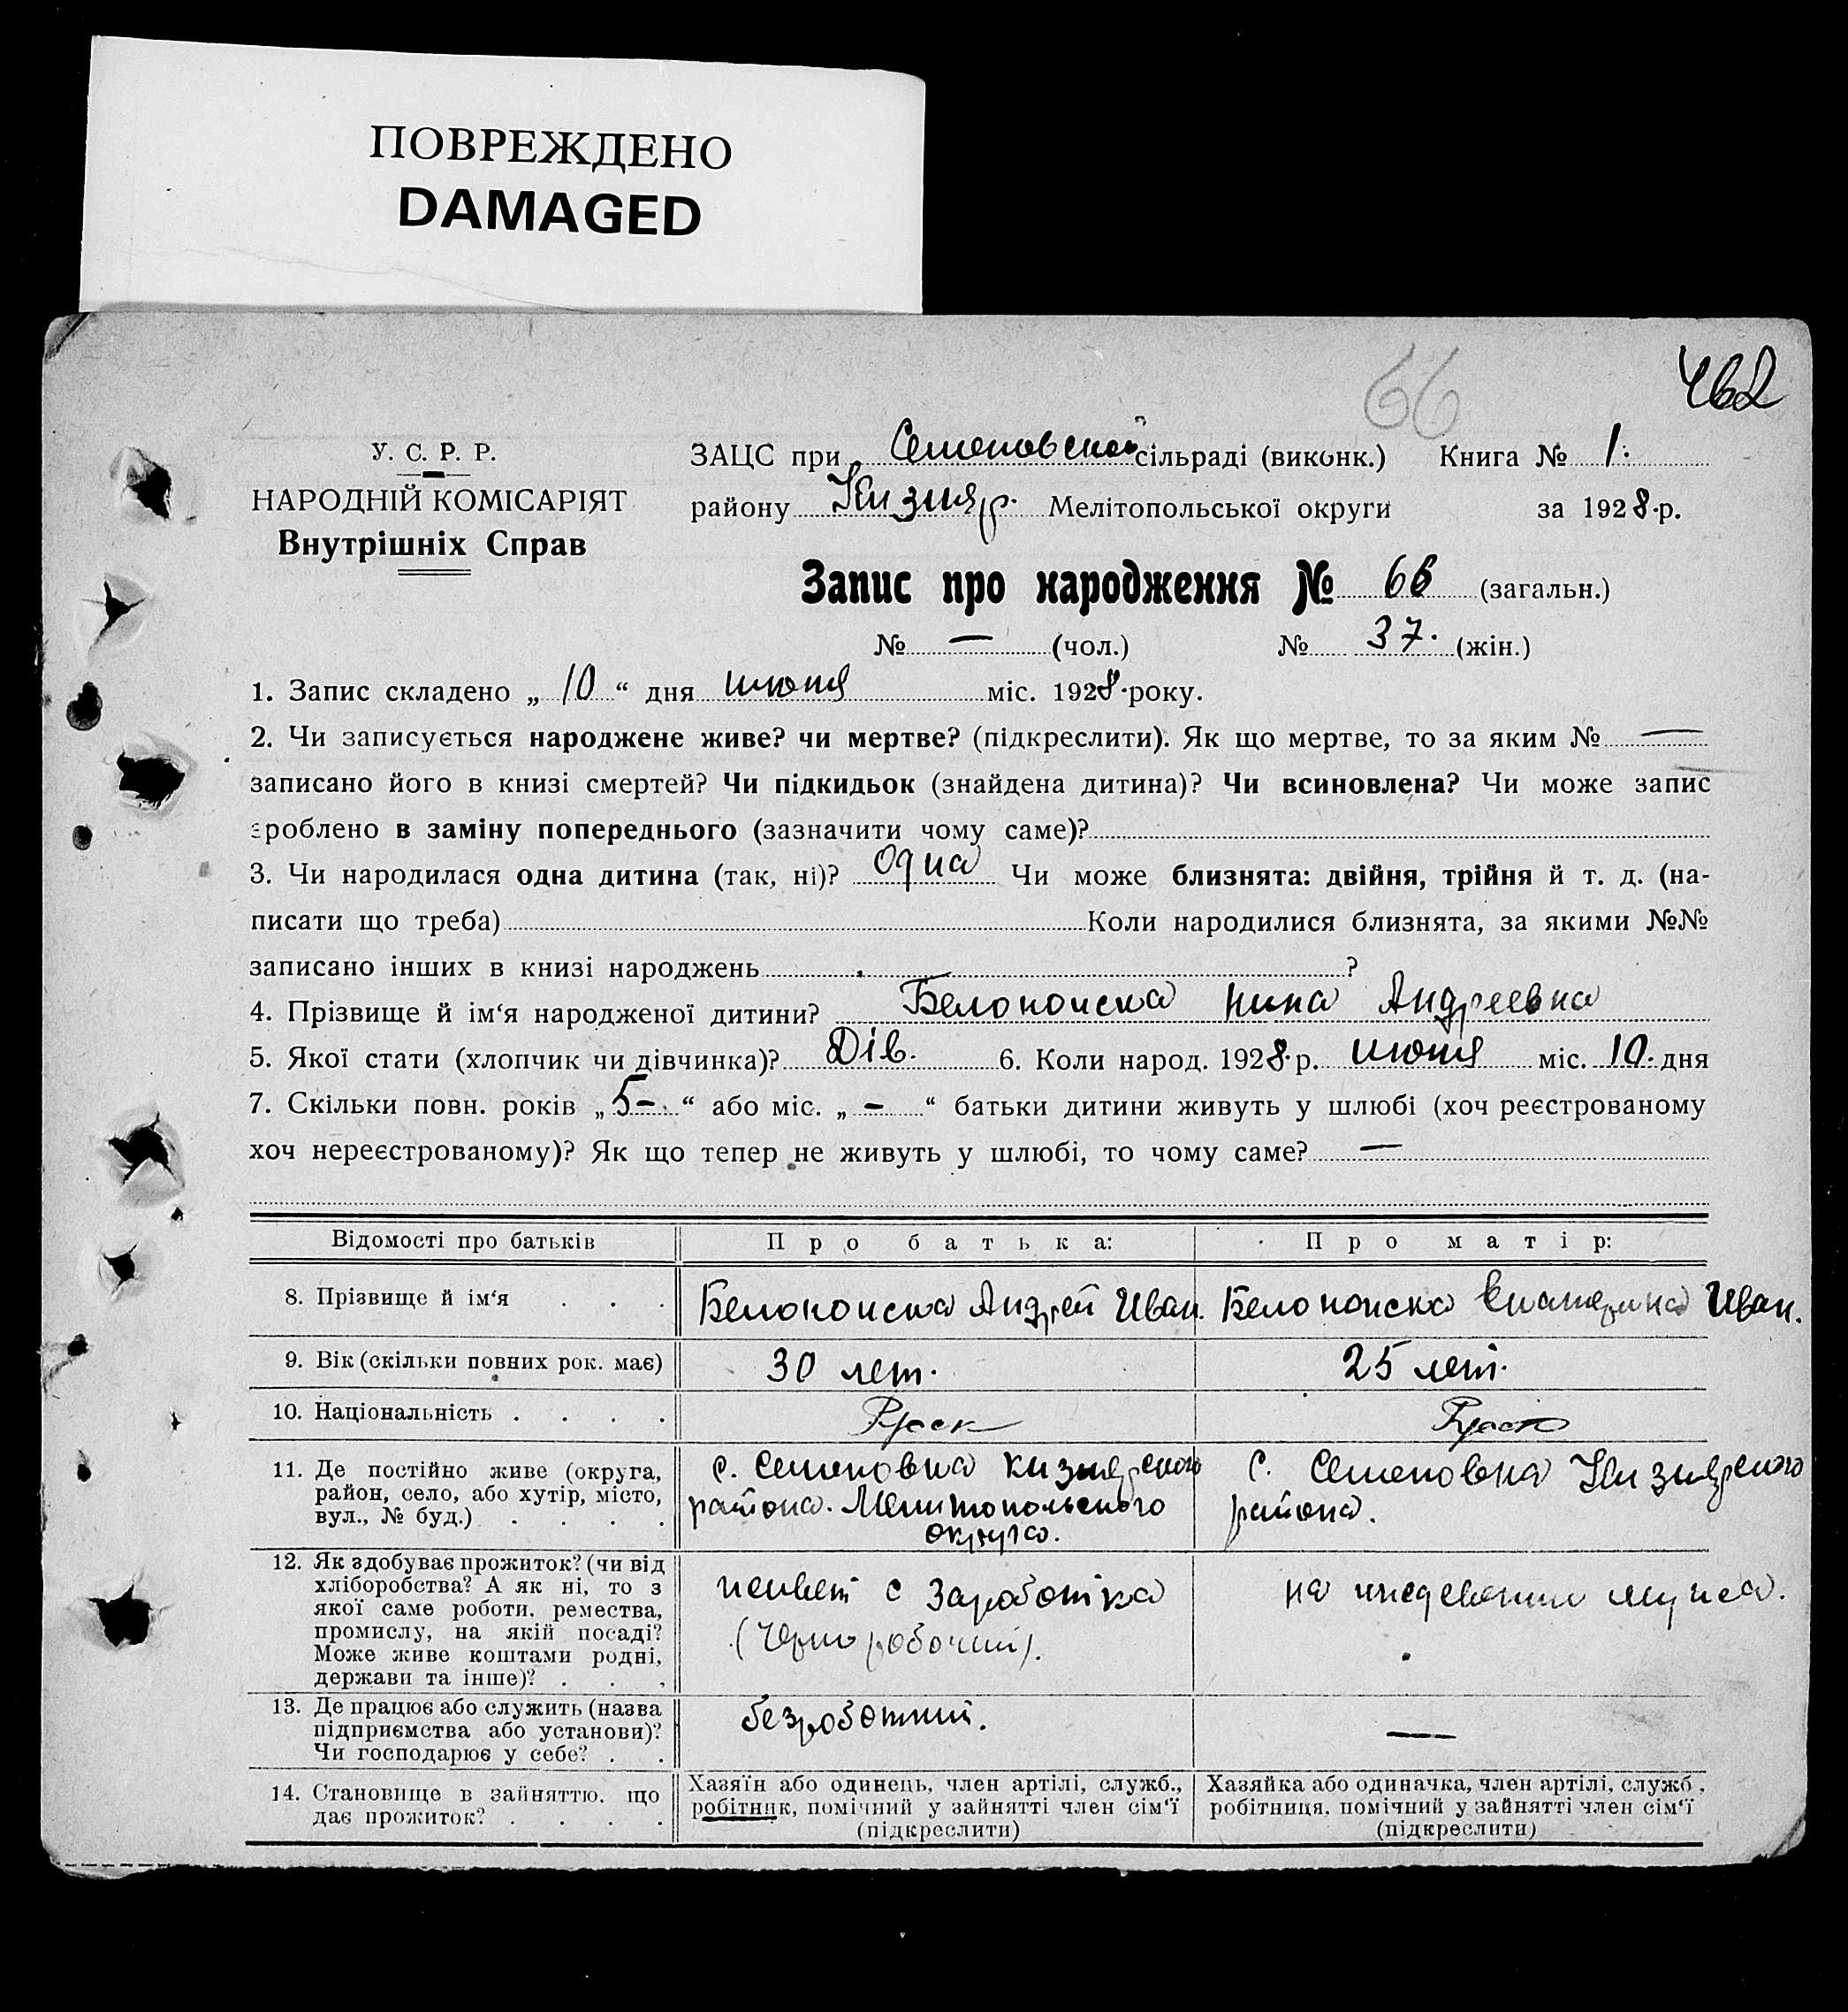 ПОВРЕЖДЕНО
DAMAGED
66
462
У. С. Р. Р.
НАРОДНІЙ КОМІСАРІЯТ
Внутрішніх Справ
ЗАЦС при Семеновской сільраді (виконк.) Книга № 1.
району Кизияр. Мелітопольської округи за 1928 р.
Запис про народження № 66 (загальн.)
№ — (чол.) № 37. (жін.)
1. Запис складено „ 10 “ дня июня міс. 1928 року.
2. Чи записується народжене живе? чи мертве? (підкреслити). Як що мертве, то за яким № —
записано його в книзі смертей? Чи підкидьок (знайдена дитина)? Чи всиновлена? Чи може запис
зроблено в заміну попереднього (зазначити чому саме)?
3. Чи народилася одна дитина (так, ні)? Одна Чи може близнята: двійня, трійня й т. д. (на-
писати що треба) Коли народилися близнята, за якими №№
записано інших в книзі народжень ?
4. Прізвище й ім‘я народженої дитини? Нина Андреевна
5. Якої стати (хлопчик чи дівчинка)? Дів. 6. Коли народ. 1928 р. июня міс. 10. дня
7. Скільки повн. років „ 5 – “ або міс. „ – “ батьки дитини живуть у шлюбі (хоч реєстрованому
хоч нереєстрованому)? Як що тепер не живуть у шлюбі, то чому саме? —
Відомості про батьків Про батька: Про матір:
8. Прізвище й ім‘я . . . Андрей Иван. Екатерина Иван.
9. Вік (скільки повних рок. має) 30 лет. 25 лет.
10. Національність . . . .
11. Де постійно живе (округа, район, село, або хутір, місто, вул., № буд.) . . . .
с. Семеновка Кизиярского
района. Мелитопольского
округа.
с. Семеновка Кизиярского
района.
12. Як здобуває прожиток? (чи від хліборобства? А як ні, то з якої саме роботи, ремества, промислу, на якій посаді? Може живе коштами родні, держави та інше)? . . .
живет с заработка
(Чернорабочий).
на иждевении мужа.
13. Де працює або служить (назва підприємства або установи)? Чи господарює у себе? . .
безработний.
—
14. Становище в зайняттю, що дає прожиток? . . . .
Хазяїн або одинець, член артілі, служб.,
робітник, помічний у зайнятті член сім‘ї
(підкреслити)
Хазяйка або одиначка, член артілі, служб.,
робітниця, помічний у зайнятті член сім‘ї
(підкреслити)